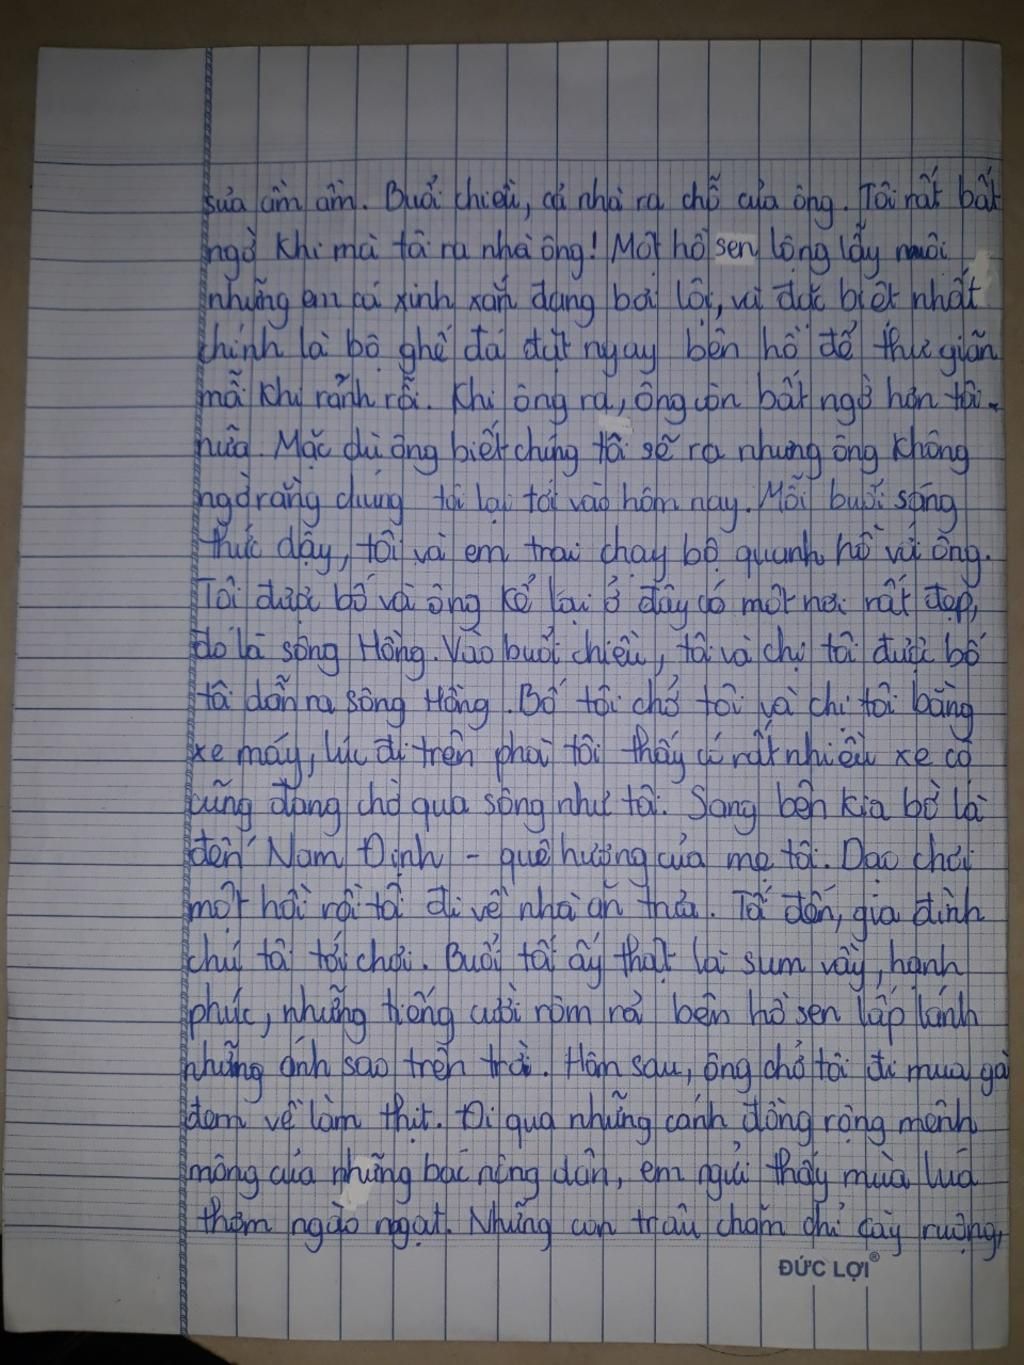 sủa ầm ầm. Buổi chiều, cả nhà ra chỗ của ông. Tôi rất bất
ngờ khi mà tôi ra nhà ông! Một hồ sen lộng lẫy nuôi
những em cá xinh xắn đang bơi lội, và đặc biệt nhất
chính là bộ ghế đá đặt ngay bên hồ để thư giãn
mỗi khi rảnh rỗi. Khi ông ra, ông còn bất ngờ hơn tôi
nữa. Mặc dù ông biết chúng tôi sẽ ra nhưng ông không
ngờ rằng chúng tôi lại tới vào hôm nay. Mỗi buổi sáng
thức dậy, tôi và em trai chạy bộ quanh hồ với ông.
Tôi được bố và ông kể lại ở đây có một nơi rất đẹp,
đó là sông Hồng. Vào buổi chiều, tôi và chị tôi được bố
tôi dẫn ra sông Hồng. Bố tôi chở tôi và chị tôi bằng
xe máy, lúc đi trên phà tôi thấy có rất nhiều xe cộ
cũng đang chờ qua sông như tôi. Sang bên kia bờ là
đến Nam Định - quê hương của mẹ tôi. Dạo chơi
một hồi rồi tôi đi về nhà ăn trưa. Tối đến, gia đình
chú tôi tới chơi. Buổi tối ấy thật là sum vầy, hạnh
phúc, những tiếng cười rôm rả bên hồ sen lấp lánh
những ánh sao trên trời. Hôm sau, ông chở tôi đi mua gà
đem về làm thịt. Đi qua những cánh đồng rộng mênh
mông của những bác nông dân, em ngửi thấy mùa lúa
thơm ngào ngạt. Những con trâu chăm chỉ cày ruộng,
ĐỨC LỢI®